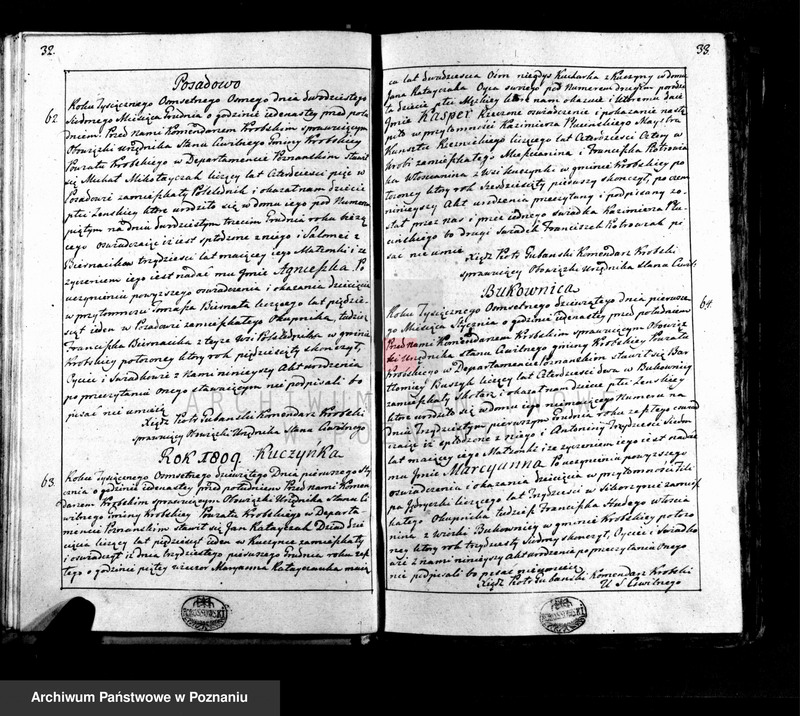 32.
Posadowo
62
Roku Tysięcznego Osmsetnego Osmego dnia dwudziestego
siodmego Miesiąca Grudnia o godzinie iedenastey przed połu
dniem Przed nami Komendarzem Krobskim sprawuiącym
Obowiązki Urzędnika Stanu Cywilnego Gminy Krobskiey
Powiatu Krobskiego w Departamencie Poznanskim stawił
się Michał Mikołayczak liczący lat czterdziesci pięc w
Posadowie zamieszkały Pułrolnik i okazał nam dziecie
płci żenskiey ktore urodziło się w domu iego pod Numerem
piątym na dniu dwudziestym trzecim Grudnia roku bieżą
cego oswiadczaiąc iż iest spłodzone z niego i Salomei z
Biernacikow trzydziesci lat maiącey iego Małżonki i że
życzeniem iego iest nadać mu Jmie Agnieszka. Po
uczynieniu powyższego oswiadczenia i okazania dziecięcia
w przytomności Tomasza Biernata liczącego lat pięćdzie-
siąt ieden w Posadowie zamieszkałego Okupnika, tudzież
Franciszka Biernacika z teyże wsi Pułsledznika w gminie
Krobskiey położoney ktory rok pięćdziesiąty skończył,
Oyciec i Swiadkowie z Nami ninieyszy Akt urodzenia
po przeczytaniu onego stawaiącym nie podpisali bo
pisać nie umieią
Xiądz Piotr Gubański Komendarz Krobski
sprawuiący Obowiązki Urzędnika Stanu Cywilnego
Rok 1809. Kuczyńka
63
Roku Tysięcznego Osmsetnego dziewiątego Dnia pierwszego Sty
cznia o godzinie iedenastey przed południem Przed nami Komen
darzem Krobskim sprawuiącym Obowiązki Urzędnika Stanu Cy
wilnego Gminy Krobskiey Powiatu Krobskiego w Departa-
mencie Poznanskim stawił się Jan Katayczak Dziad dzie
cięcia liczący lat pięćdziesiąt ieden w Kuczynce zamieszkały
i oswiadczył iż dnia trzydziestego pierwszego Grudnia roku zesz
łego o godzinie piątey wieczor Maryanna Katayczanka maią
33.
ca lat dwadziescia Osm niegdys Kucharka z Kuczyny w domu
Jana Katayczaka Oyca swoiego pod Numerem drugim porodzi
ła dziecie płci Męskiey ktore nam okazuie i ktoremu daie
Jmie Kasper Rzeczone oswiadczenie i pokazanie nastą
piło w przytomności Kazimierza Pluwińskiego Maystra
Kunsztu Rzeźnickiego liczącego lat Czterdziesci Cztery w
Krobi zamieszkałego Mieszczanina i Franciszka Ratrania
ka Włoscianina z wsi Kuczynki w gminie Krobskiey po
łożoney ktory rok szesdziesiąty pierwszy skonczył, po czem
ninieyszy Akt urodzenia przeczytany i podpisany zo-
stał przez nas i przez iednego swiadka Kazimierza Plu-
winskiego bo drugi swiadek Franciszek Ratrowiak pi
sać nie umie
Xiądz Piotr Gubanski Komendarz Krobski
sprawuiący Obowiązki Urzędnika Stana Cywil.
Bukownica
64.
Roku Tysięcznego Osmsetnego dziewiątego dnia pierwsze
go Miesiąca Stycznia o godzinie iedenastey przed południem
Przed nami Komendarzem Krobskim sprawuiącym Obowiąz
ki Urzędnika stanu Cywilnego gminy Krobskiey Powiatu
Krobskiego w Departamencie Poznanskim stawił się Bar
tłomiey Buszyk liczący lat czterdziesci dwa w Bukownicy
zamieszkały i okazał nam dziecie płci żenskiey
ktore urodziło się w domu iego nie maiącego Numeru na
dniu trzydziestym pierwszym Grudnia roku zeszłego oswiad
czaiąc iż spłodzone z niego i Antoniny trzydziesci siedm
lat maiącey iego Małżonki i że życzeniem iego iest nadać
mu Jmie Marcyanna Po uczynieniu powyższego
oswiadczenia i okazania dziecięcia w przytomności Fili
pa liczącego lat trzydziesci w Sikorzynie zamiesz
kałego Okupnika tudzież Franciszka Hudego Włoscia
nina z wioski Bukownicy w gminie Krobskiey położo
ney ktory rok trzydziesty siodmy skonczył, Oyciec i Swiadko
wie z nami ninieyszy Akt urodzenia po przeczytaniu Onego
nie podpisali bo pisać nie umieią
Xiądz Piotr Gubanski Komendarz Krobski
U. S. Cywilnego
ARCHIWUM PAŃSTWOWE
W POZNANIU
Archiwum Państwowe w Poznaniu